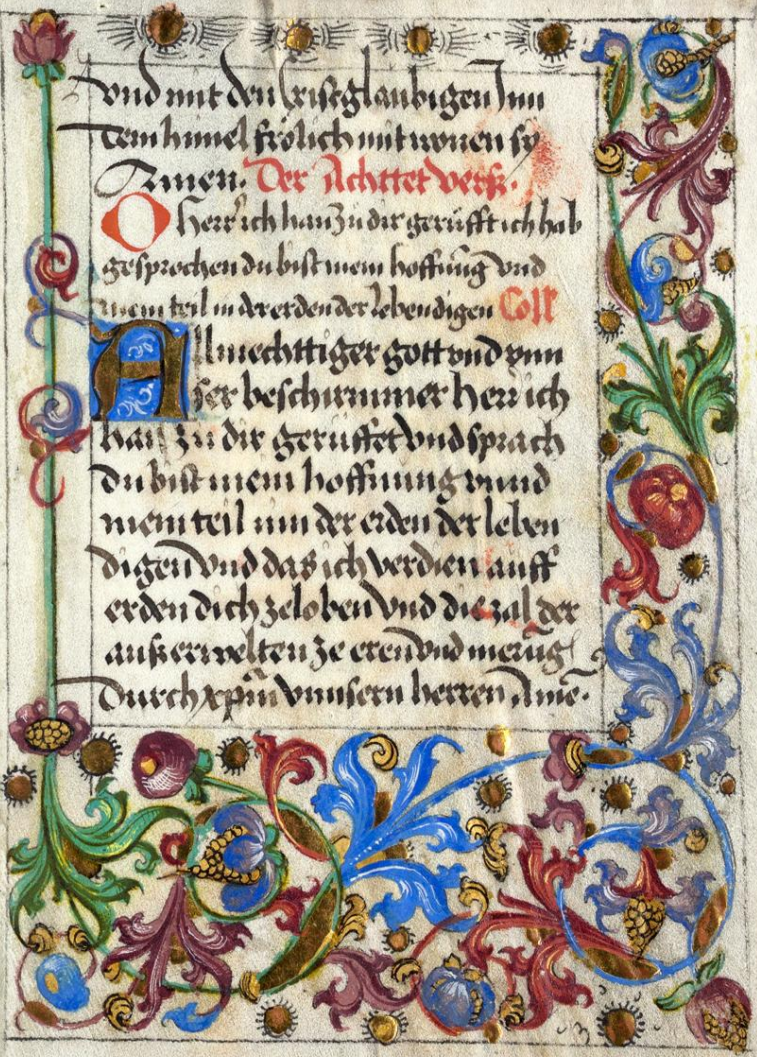 vnd mit den cristglaubigen Jnn
dem himel frölich mit wonen sy
Amen. Der Achttet verß.
O Herr ich han zu dir gerüfft ich hab
gesprochen du bist mein hoffnūg vnd
mein teil in der erden der lebendigen Coll
Allmechttiger gott vnd vnn
ser beschirmmer herr ich
han zu dir gerüffet vnd sprach
du bist mein hoffnung vnnd
mein teil inn der erden der leben
digen vnd das ich verdien auff
erden dich ze loben vnd die zal der
ausserwelten ze eren vnd
Durch xpm̄ vnnsern herren Amē.